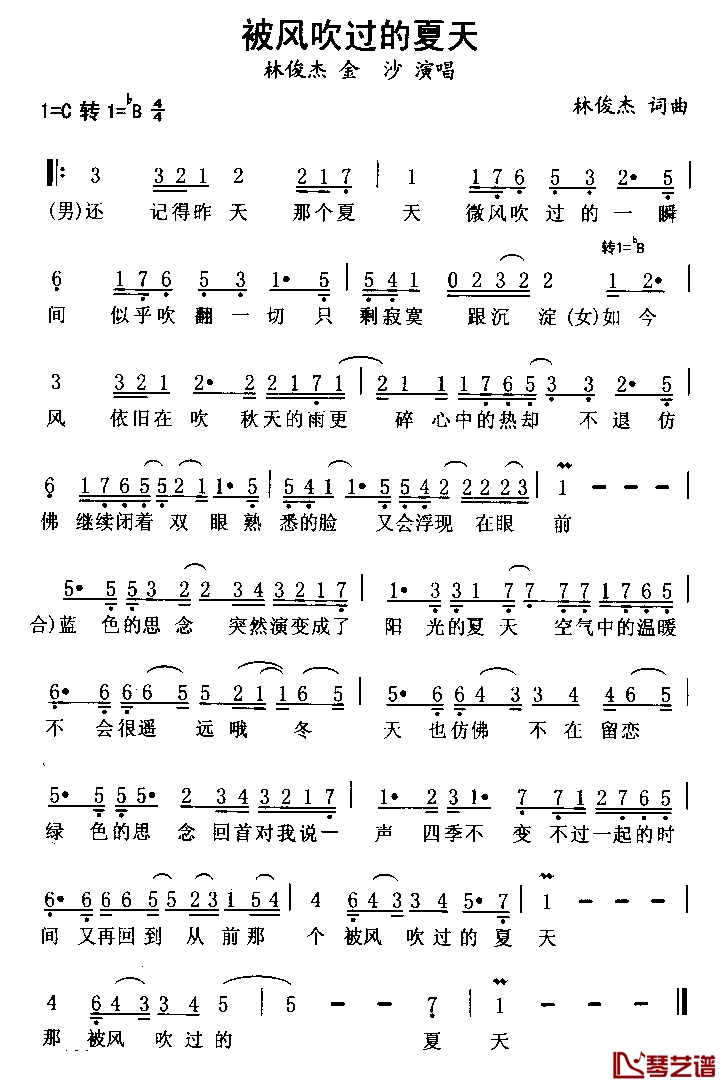 被风吹过的夏天
林俊杰 金 沙 演唱
1=C 转 1=♭B 4/4
林俊杰 词曲
3 321 2 217 | 1 176 53 2• 5 |
(男)还 记得昨 天 那个夏 天 微风吹 过的一 瞬
转1=♭B
6 176 53 1• 5 | 541 0232 2 12• |
间 似乎吹 翻一切 只 剩寂寞 跟沉 淀(女)如今
3 321 2• 2 2217 1 | 21 1 1765 3 3 2• 5 |
风 依旧在 吹 秋天的雨更 碎 心中的热却 不退仿
6 1765 521 1• 5 | 541 1• 5 542 2223 | 1 – – – |
佛 继续闭着 双 眼 熟 悉的脸 又会浮现 在眼 前
5• 553 2 2 34 3217 | 1• 331 7 77 1765 |
合)蓝 色的思 念 突然演变成了 阳 光的夏 天 空气中的温暖
6• 666 5 5 21 1 16 5 | 5• 664 3 34 46 5 |
不 会很遥 远哦 冬 天 也仿佛 不 在 留恋
5• 555• 2 34 3217 | 1• 23 1• 7 7 2765 |
绿 色的思 念 回首对我说一 声 四季不 变 不过一起的时
6• 666 5 523 154 | 4 643 34 5• 7 | 1 – – – |
间 又再回到 从 前那 个 被风 吹过的 夏 天
4 643 34 5 | 5 – – 7 | 1 – – – ‖
那 被风 吹过的 夏 天
琴艺谱